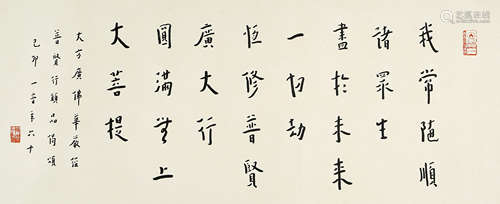 我常隨順
諸眾生
盡於未來
一切劫
恒修普賢
廣大行
圓滿無上
大菩提
大方廣佛華嚴經
普賢行願品偈頌
己卯一音年六十